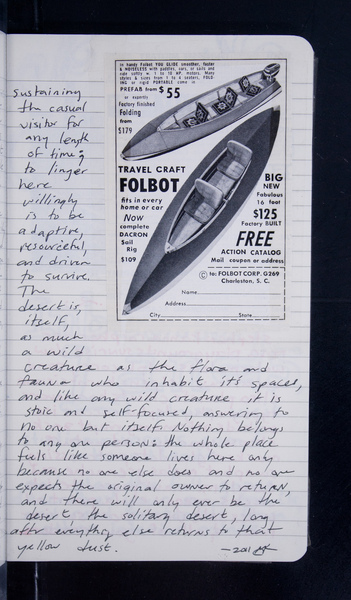 In handy Folbot YOU GLIDE smoother, faster
& NOISELESS with paddles, oars, or sails and
ride softly w. 1 to 10 HP. motors. Many
styles & sizes from 1 to 4 seaters, FOLD-
ING or rigid PORTABLE come in
PREFAB from $55
or expertly
Factory finished
Folding
from
$179
TRAVEL CRAFT
FOLBOT
fits in every
home or car
Now
complete
DACRON
Sail
Rig
$109
BIG
NEW
Fabulous
16 foot
$125
Factory BUILT
FREE
ACTION CATALOG
Mail coupon or address
to: FOLBOT CORP. G269
Charleston, S. C.
Name
Address
City State
sustaining
the casual
visitor for
any length
of time;
to linger
here
willingly
is to be
adaptive,
resourceful,
and driven
to survive.
The
desert is,
itself,
as much
a wild
creature as the flora and
fauna who inhabit its spaces,
and like any wild creature it is
stoic and self-focused, answering to
no one but itself. Nothing belongs
to any one person: the whole place
feels like someone lives here only
because no one else does and no one
expects the original owner to return,
and there will only ever be the
desert the solitary desert, long
after everything else returns to that
yellow dust. —2011